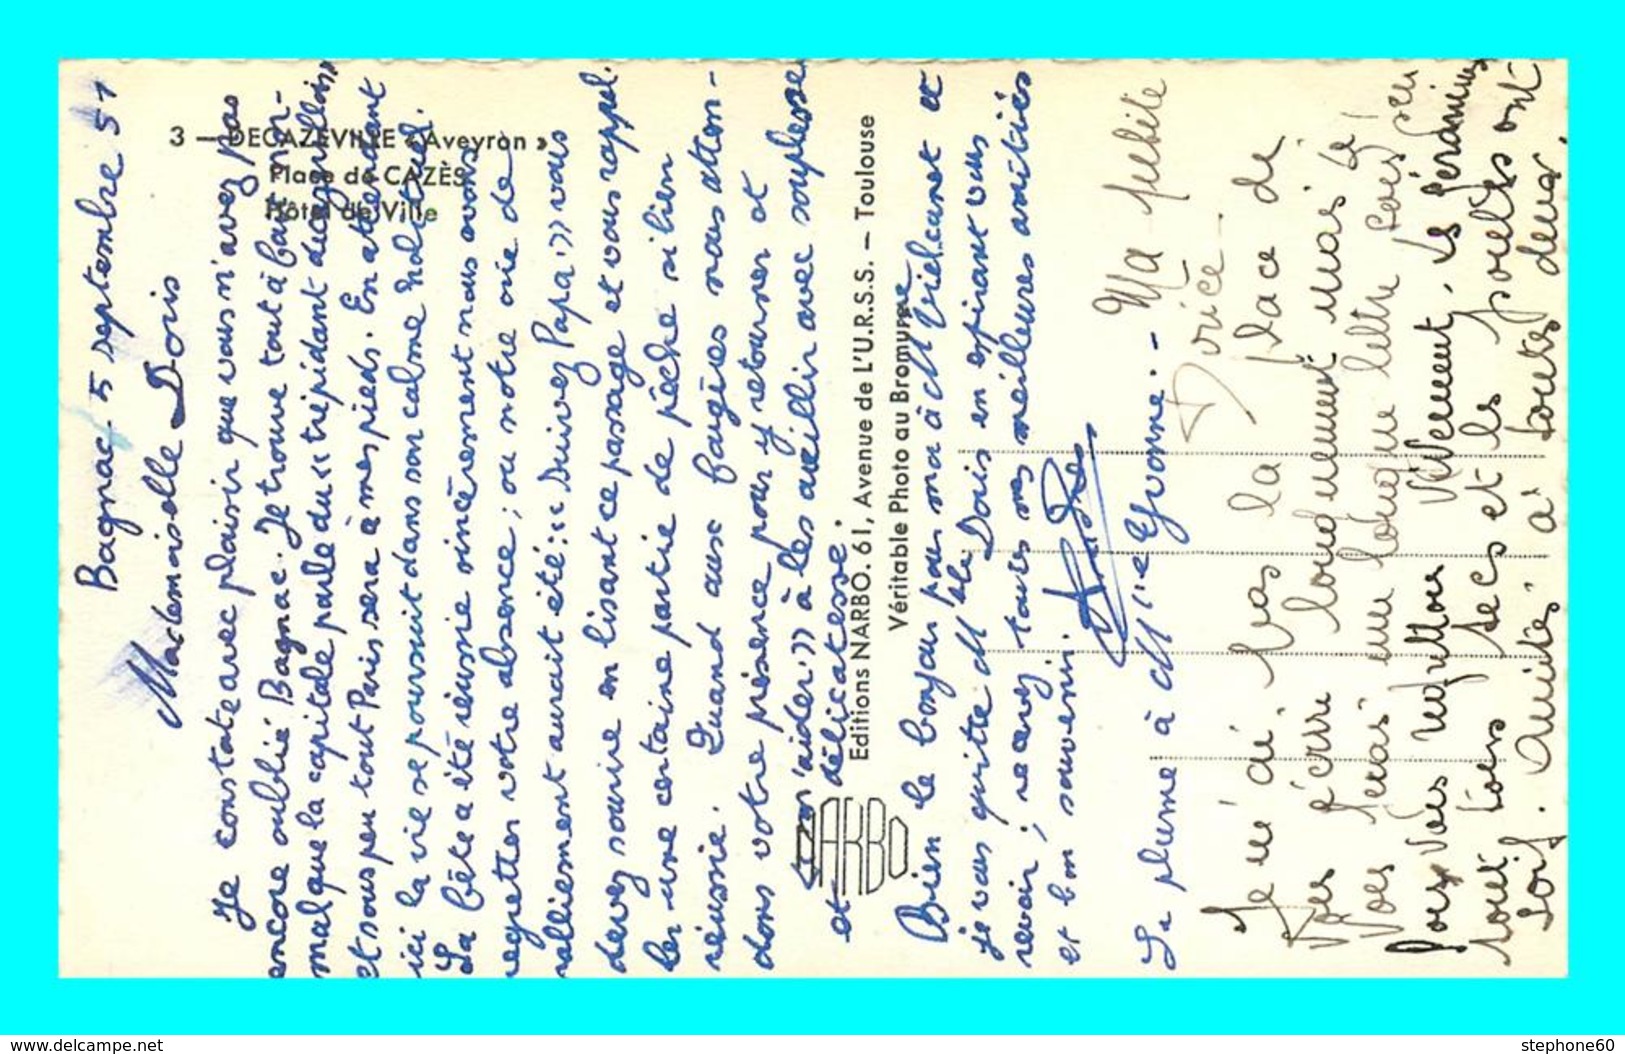 3 — DECAZEVILLE « Aveyron »
Place de CAZÈS
Hôtel de Ville
Bagnac 5 septembre 51
Mademoiselle Doris
Je constate avec plaisir que vous n'avez pas
encore oublié Bagnac. Je trouve tout à fait nor-
mal que la capitale parle du « trépidant decazevillois »
et sous peu tout Paris sera à mes pieds. En attendant
ici la vie se poursuit dans son calme habituel.
La fête a été réussie sincèrement nous avons
regretté votre absence ; ou notre oie de
ralliement aurait été : « Suivez Papa » vous
devez sourire en lisant ce passage et vous rappel-
ler une certaine partie de pêche si bien
réussie. Quand aux fougères nous atten-
dons votre présence pour y retourner et
« m'aider » à les cueillir avec souplesse
et délicatesse.
Editions NARBO. 61, Avenue de L'U.R.S.S. — Toulouse
Véritable Photo au Bromure
NARBO
Bien le bonjour pour moi à M Vielcanet et
je vous quitte Mlle Doris en espérant vous
revoir ; recevez toutes mes meilleures amitiés
et bon souvenir.
André
La plume à Mlle Yvonne. —
Ma petite
Dorice —
Je n'ai pas la place de
vous écrire longuement mais je
vous ferais une longue lettre sous peu
vous
tout secs et les poulets ont
soif. Amitiés à toutes deux.